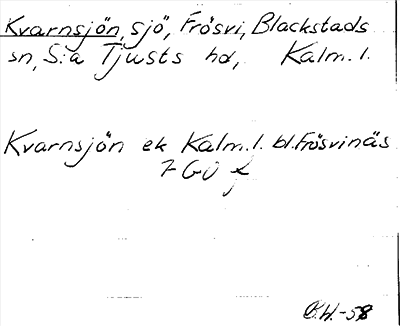 Kvarnsjön, sjö, Frösvi, Blackstads
sn, S:a Tjusts hd, Kalm. l.
Kvarnsjön ek Kalm. l. bl. Frösvinäs
7 GÖ f
O.W.-58